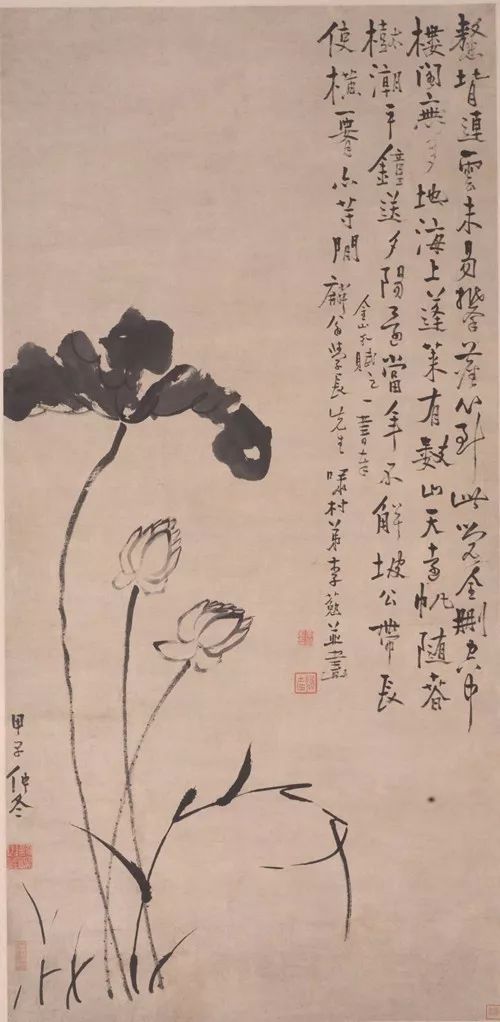 鼇背連雲未易攀心到此覺全刪空中
樓閣無多地海上蓬萊有數山天遠帆隨春
樹潮平鐘送夕陽還當年不解坡公帶長
使橫亦等閒
金山之一書奉
翁學長先生 嘯村弟李葂並畫
甲子仲冬